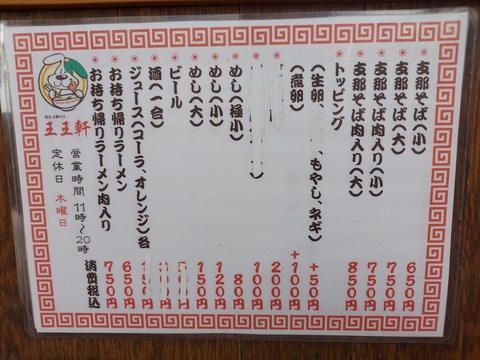 支那そば(小) 650円
支那そば(大) 750円
支那そば肉入り(小) 750円
支那そば肉入り(大) 850円
トッピング
(生卵、もやし、ネギ) +50円
(煮卵) +100円
200円
100円
めし(極小) 80円
めし(小) 120円
めし(大) 150円
ビール
酒(一合)
ジュース(コーラ、オレンジ)各
お持ち帰りラーメン 650円
お持ち帰りラーメン肉入り 750円
消費税込
王王軒
営業時間 11時~20時
定休日 木曜日